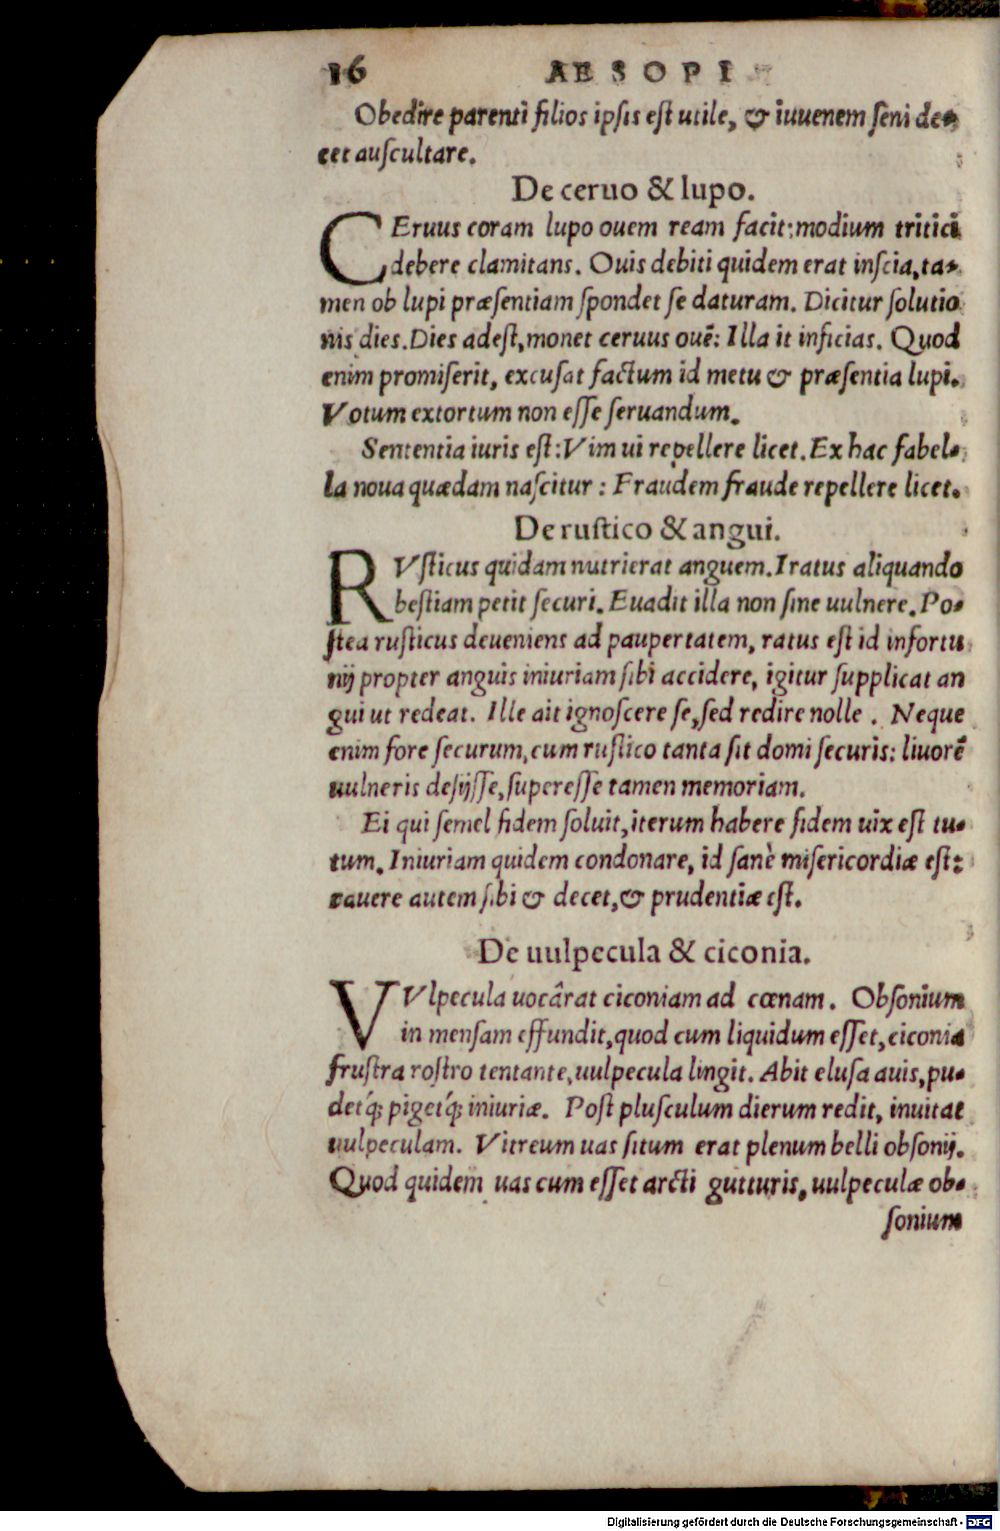 16 AESOPI
Obedire parenti filios ipsis est utile, & iuuenem seni de-
cet auscultare.
De ceruo & lupo.
CEruus coram lupo ouem ream facit: modium tritici
debere clamitans. Ouis debiti quidem erat inscia, ta-
men ob lupi præsentiam spondet se daturam. Dicitur solutio
nis dies. Dies adest, monet ceruus ouē: Illa it inficias. Quod
enim promiserit, excusat factum id metu & præsentia lupi.
Votum extortum non esse seruandum.
Sententia iuris est: Vim ui repellere licet. Ex hac fabel-
la noua quædam nascitur: Fraudem fraude repellere licet.
De rustico & angui.
RVsticus quidam nutrierat anguem. Iratus aliquando
bestiam petit securi. Euadit illa non sine uulnere. Po-
stea rusticus deueniens ad paupertatem, ratus est id infortu
nij propter anguis iniuriam sibi accidere, igitur supplicat an
gui ut redeat. Ille ait ignoscere se, sed redire nolle. Neque
enim fore securum, cum rustico tanta sit domi securis: liuorē
uulneris desijsse, superesse tamen memoriam.
Ei qui semel fidem soluit, iterum habere fidem uix est tu-
tum. Iniuriam quidem condonare, id sanè misericordiæ est:
cauere autem sibi & decet, & prudentiæ est.
De uulpecula & ciconia.
VVlpecula uocârat ciconiam ad cœnam. Obsonium
in mensam effundit, quod cum liquidum esset, ciconia
frustra rostro tentante, uulpecula lingit. Abit elusa auis, pu-
detq́; pigetq́; iniuriæ. Post plusculum dierum redit, inuitat
uulpeculam. Vitreum uas situm erat plenum belli obsonij.
Quod quidem uas cum esset arcti gutturis, uulpeculæ ob-
sonium
Digitalisierung gefördert durch die Deutsche Forschungsgemeinschaft - DFG